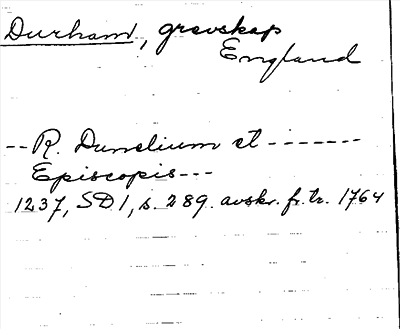 Durham, grevskap
England
-- R. Dunelium et -------
Episcopis ---
1237, SD 1, s. 289. avskr. fr. tr. 1764